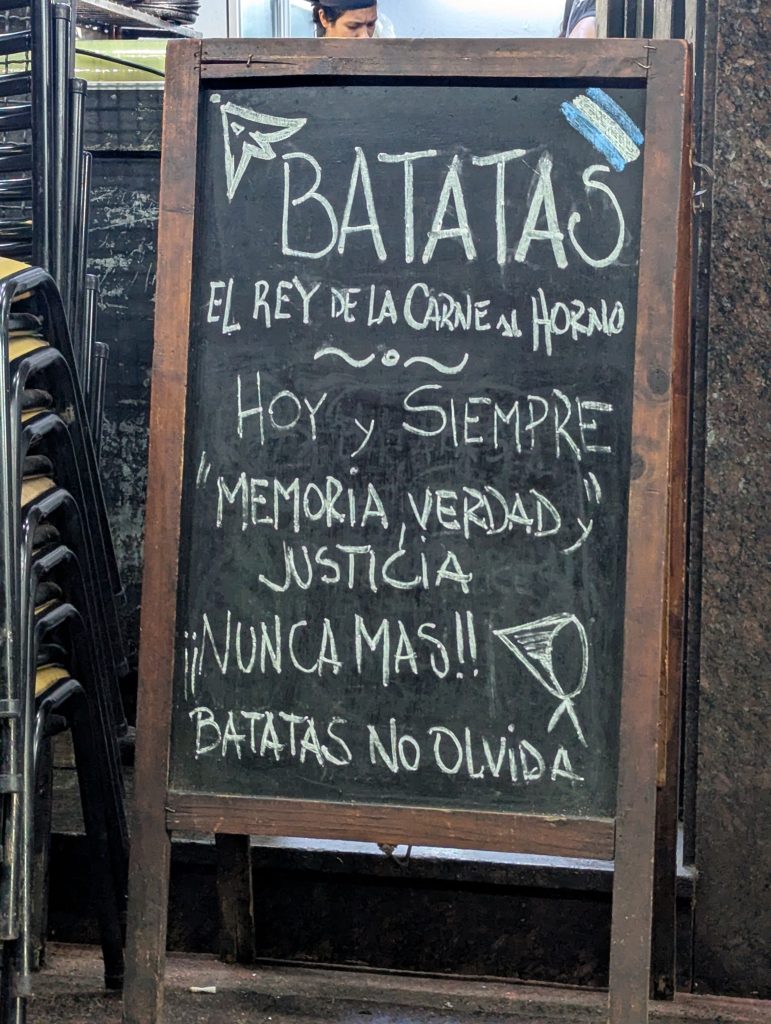 BATATAS
EL REY DE LA CARNE AL HORNO
HOY Y SIEMPRE
"MEMORIA, VERDAD Y"
JUSTICIA
¡¡NUNCA MAS!!
BATATAS NO OLVIDA